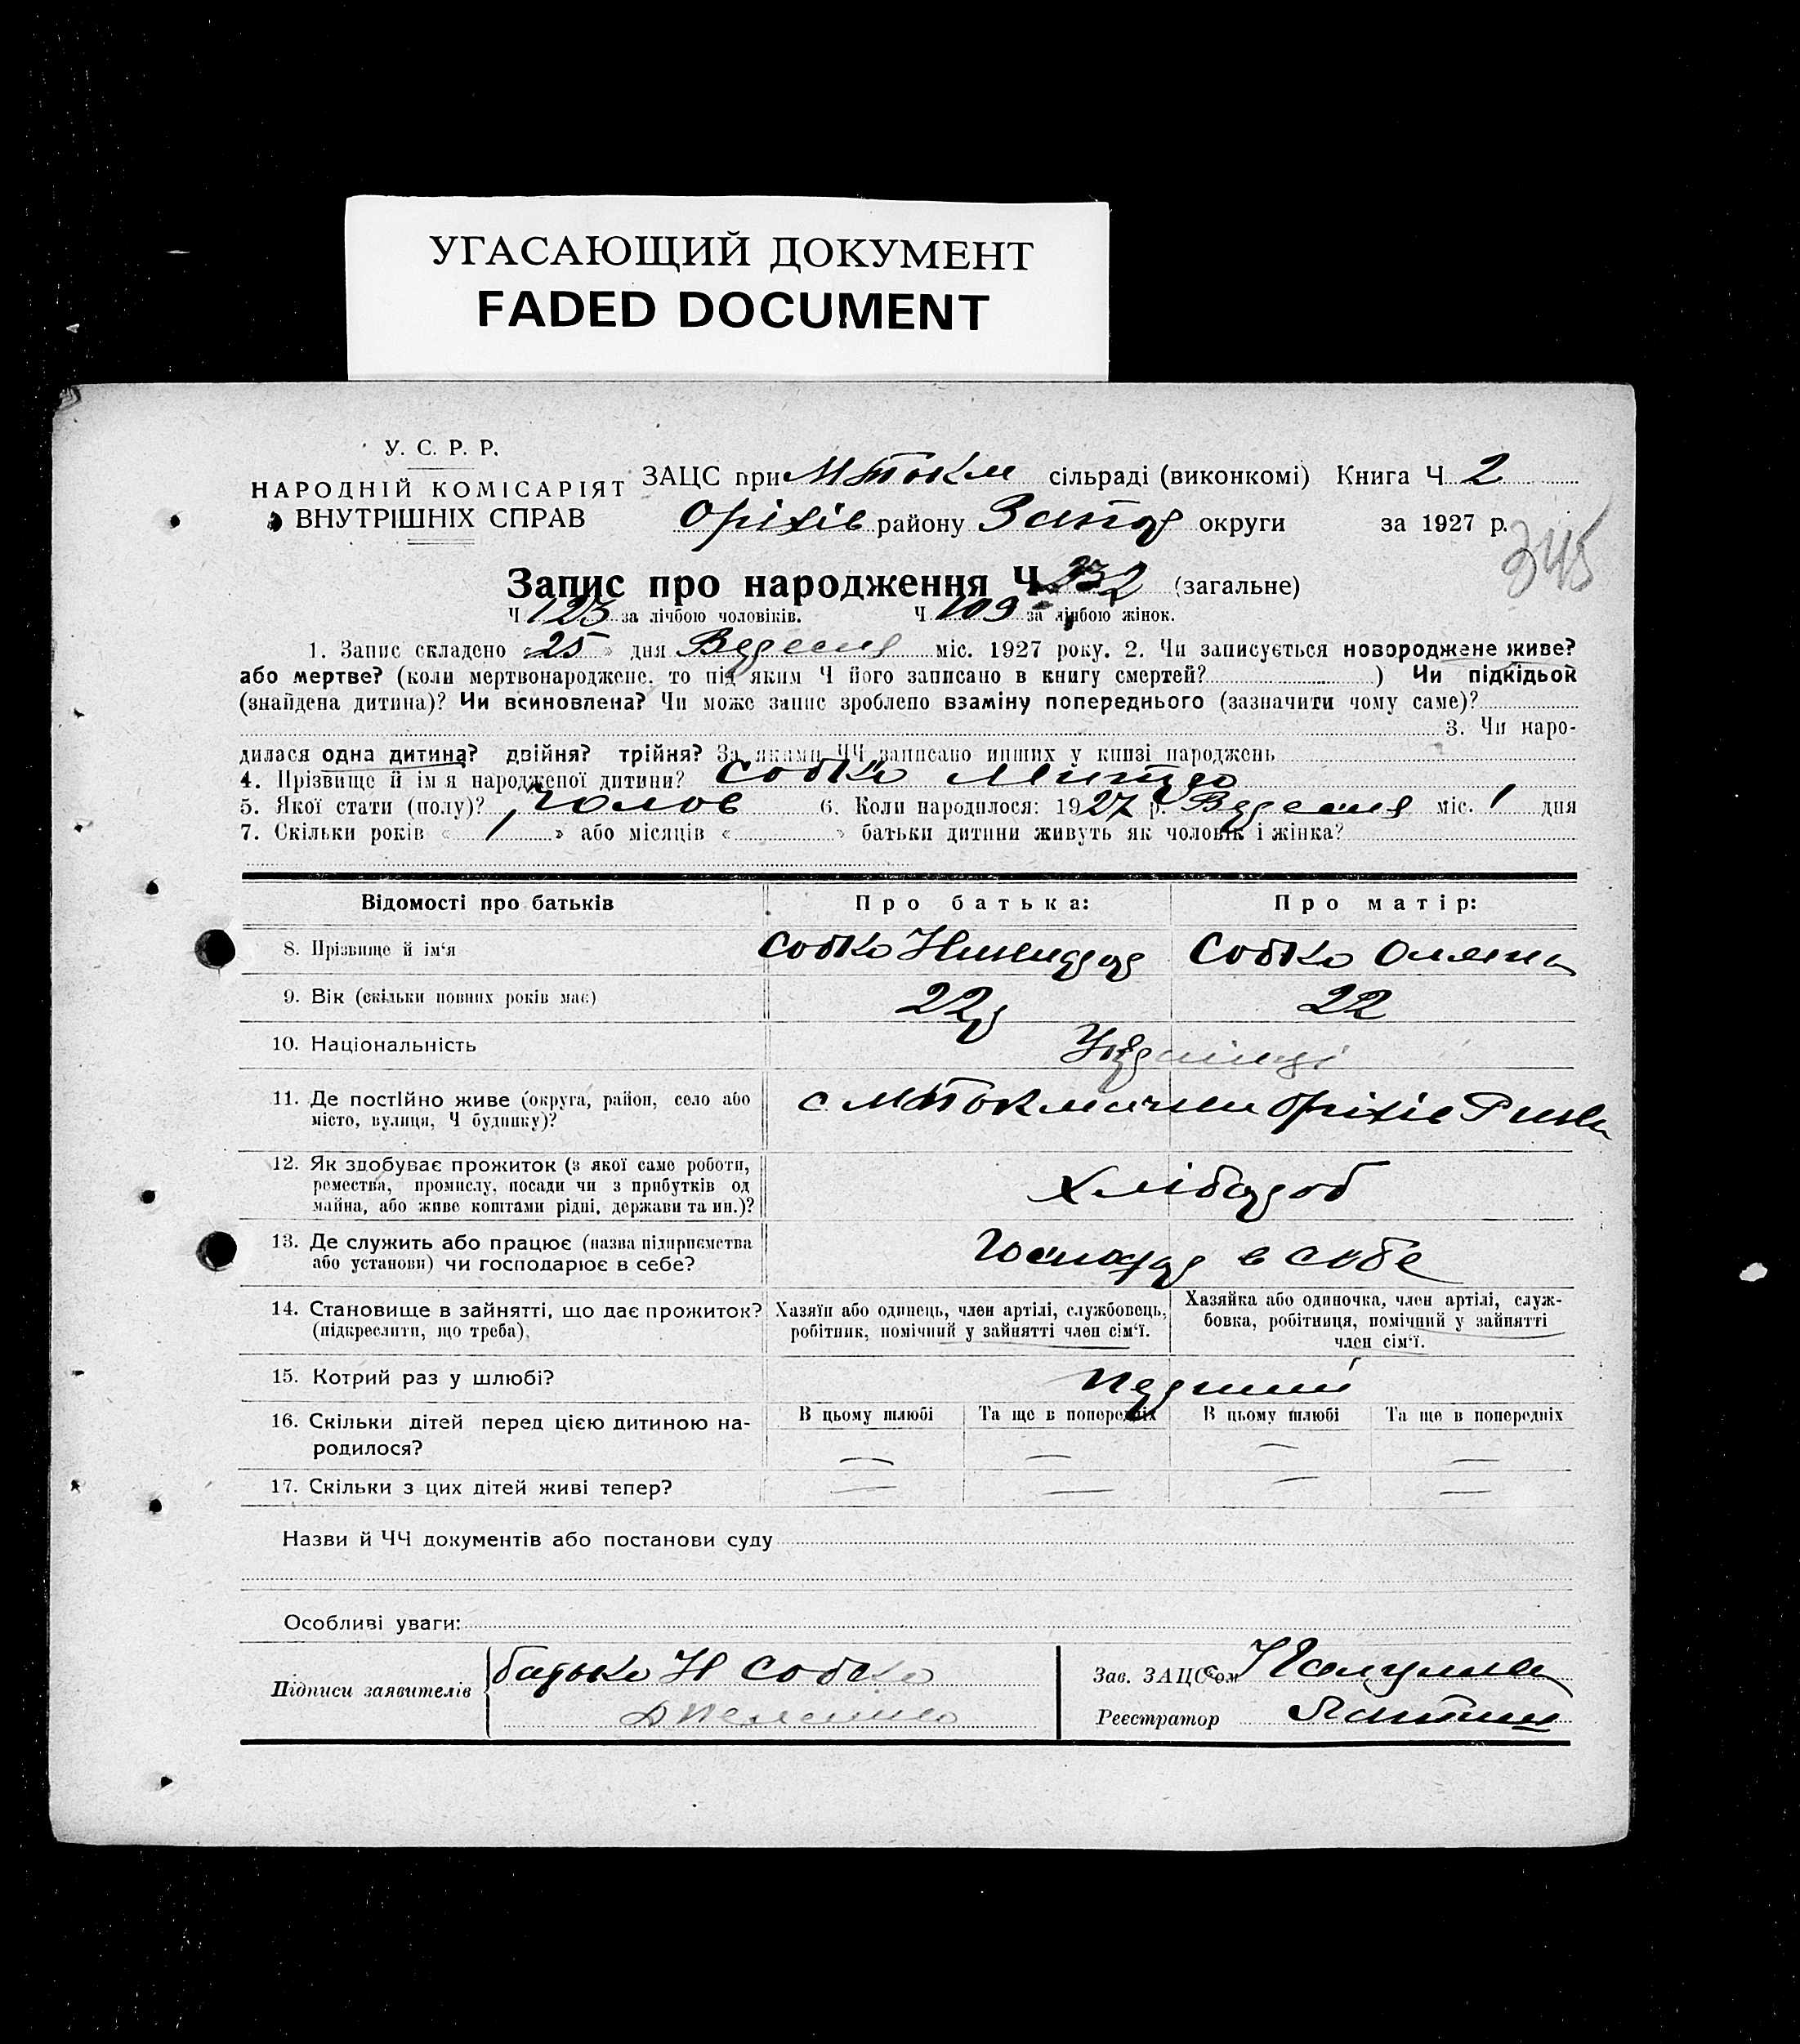 УГАСАЮЩИЙ ДОКУМЕНТ
FADED DOCUMENT
У. С. Р. Р.
НАРОДНІЙ КОМІСАРІЯТ
ВНУТРІШНІХ СПРАВ
ЗАЦС при МТокм сільраді (виконкомі) Книга Ч 2
Оріхів району Запор округи за 1927 р.
345
Запис про народження Ч 232 (загальне)
Ч 123 за лічбою чоловіків. Ч 109 за лічбою жінок.
1. Запис складено «25» дня Вересня міс. 1927 року. 2. Чи записується новороджене живе?
або мертве? (коли мертвонароджене, то під яким Ч його записано в книгу смертей? ) Чи підкідьок
(знайдена дитина)? Чи всиновлена? Чи може запис зроблено взаміну попереднього (зазначити чому саме)?
3. Чи наро-
дилася одна дитина? двійня? трійня? За якими ЧЧ записано инших у книзі народжень
4. Прізвище й ім'я народженої дитини? Собко
5. Якої стати (полу)? Чолов 6. Коли народилося: 1927 р. Вересня міс. 1 дня
7. Скільки років « 1 » або місяців « » батьки дитини живуть як чоловік і жінка?
Відомості про батьків Про батька: Про матір:
8. Прізвище й ім'я Собко Собко Олена
9. Вік (скільки повних років має) 22р 22
10. Національність Українці
11. Де постійно живе (округа, район, село або
місто, вулиця, Ч будинку)? с МТокмачки Оріхів
12. Як здобуває прожиток (з якої саме роботи,
ремества, промислу, посади чи з прибутків од
майна, або живе коштами рідні, держави та ин.)? Хлібороб
13. Де служить або працює (назва підприємства
або установи) чи господарює в себе? Господар в себе
14. Становище в зайнятті, що дає прожиток?
(підкреслити, що треба).
Хазяїн або одинець, член артілі, службовець,
робітник, помічний у зайнятті член сім'ї.
Хазяйка або одиночка, член артілі, служ-
бовка, робітниця, помічний у зайнятті
член сім'ї.
15. Котрий раз у шлюбі? перший
16. Скільки дітей перед цією дитиною на-
родилося?
В цьому шлюбі Та ще в попередніх В цьому шлюбі Та ще в попередніх
— — — —
17. Скільки з цих дітей живі тепер? — — — —
Назви й ЧЧ документів або постанови суду
Особливі уваги:
Підписи заявителів батько Н Собко
Зав. ЗАЦС'ом
Реєстратор